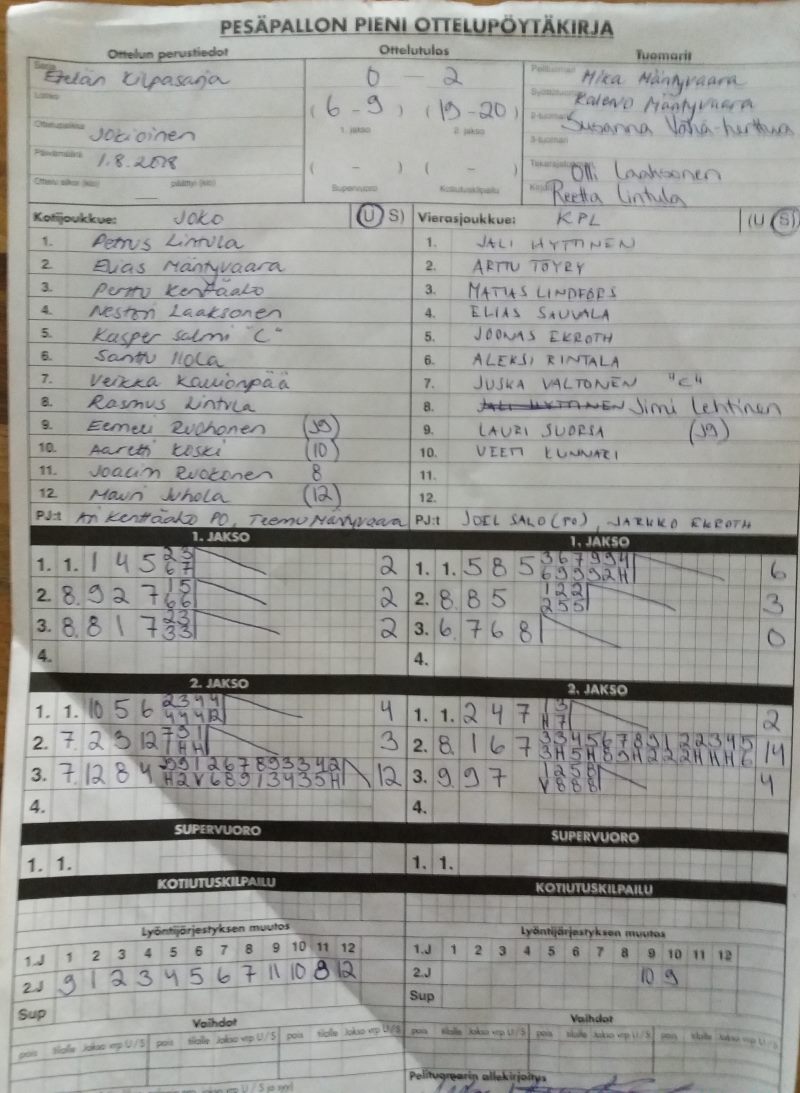 PESÄPALLON PIENI OTTELUPÖYTÄKIRJA
Ottelun perustiedot Ottelutulos Tuomarit
Sarja Etelän Kilpasarja 0 - 2 Pelituomari Mika Mäntyvaara
Lohko (6-9) (19-20) Kalervo Mäntyvaara
1. jakso 2. jakso 2-tuomari Susanna Vähä-herttua
Ottelupaikka Jokioinen 3-tuomari
Päivämäärä 1.8.2018 ( - ) ( - ) Olli Laaksonen
Supervuoro Kotiutuskilpailu Reetta Lintula
Kotijoukkue: JOKO (U S) Vierasjoukkue: KPL (U S)
1. Petrus Lintula 1. JALI HYTTINEN
2. Elias Mäntyvaara 2. ARTTU TÖYRY
3. Perttu Kenttäaho 3. MATIAS LINDFORS
4. Nestori Laaksonen 4. ELIAS SAUVALA
5. Kasper Salmi "C" 5. JOONAS EKROTH
6. Santtu Ilola 6. ALEKSI RINTALA
7. Veikka Kallionpää 7. JUSKA VALTONEN "C"
8. Rasmus Lintula 8. JALI HYTTINEN Jimi Lehtinen
9. Eemeli Ruohonen (J9) 9. LAURI SUORSA (J9)
10. Aaretti Koski (10) 10. VEETI KUNNARI
11. Joacim Ruokonen 8 11.
12. Mauri Juhola (12) 12.
PJ:t Ari Kenttäaho PO, Teemu Mäntyvaara PJ:t JOEL SALO (PO), JARKKO EKROTH
1. JAKSO 1. JAKSO
1. 1. 1 4 5 2 3 2 1. 1. 5 8 5 3 6 7 9 9 4 6
6 7 6 9 9 9 2 H
2. 8. 9 2 7 1 5 2 2. 8. 8 5 1 2 2 3
6 6 2 5 5
3. 8. 8 1 7 2 3 2 3. 6. 7 6 8 0
3 3
4. 4.
2. JAKSO 2. JAKSO
1. 1. 10 5 6 2 3 4 4 4 1. 1. 2 4 7 1 3 2
4 4 4 12 H 7
2. 7. 2 3 12 7 9 1 3 2. 8. 1 6 7 3 3 4 5 6 7 8 9 1 2 2 3 4 5 14
1 H H 3 H 5 H 8 9 H 2 2 2 H H H 6
3. 7. 12 8 4 12 3. 9. 9 7 4
4. 4.
SUPERVUORO SUPERVUORO
1. 1. 1. 1.
KOTIUTUSKILPAILU KOTIUTUSKILPAILU
Lyöntijärjestyksen muutos Lyöntijärjestyksen muutos
1.J 1 2 3 4 5 6 7 8 9 10 11 12 1.J 1 2 3 4 5 6 7 8 9 10 11 12
2.J 9 1 2 3 4 5 6 7 11 10 8 12 2.J 10 9
Sup Sup
Vaihdot Vaihdot
pois tilalle Jakso vrp U/S pois tilalle Jakso vrp U/S pois tilalle Jakso vrp U/S pois tilalle Jakso vrp U/S pois tilalle Jakso vrp U/S pois tilalle Jakso vrp U/S
Pelituomarin allekirjoitus